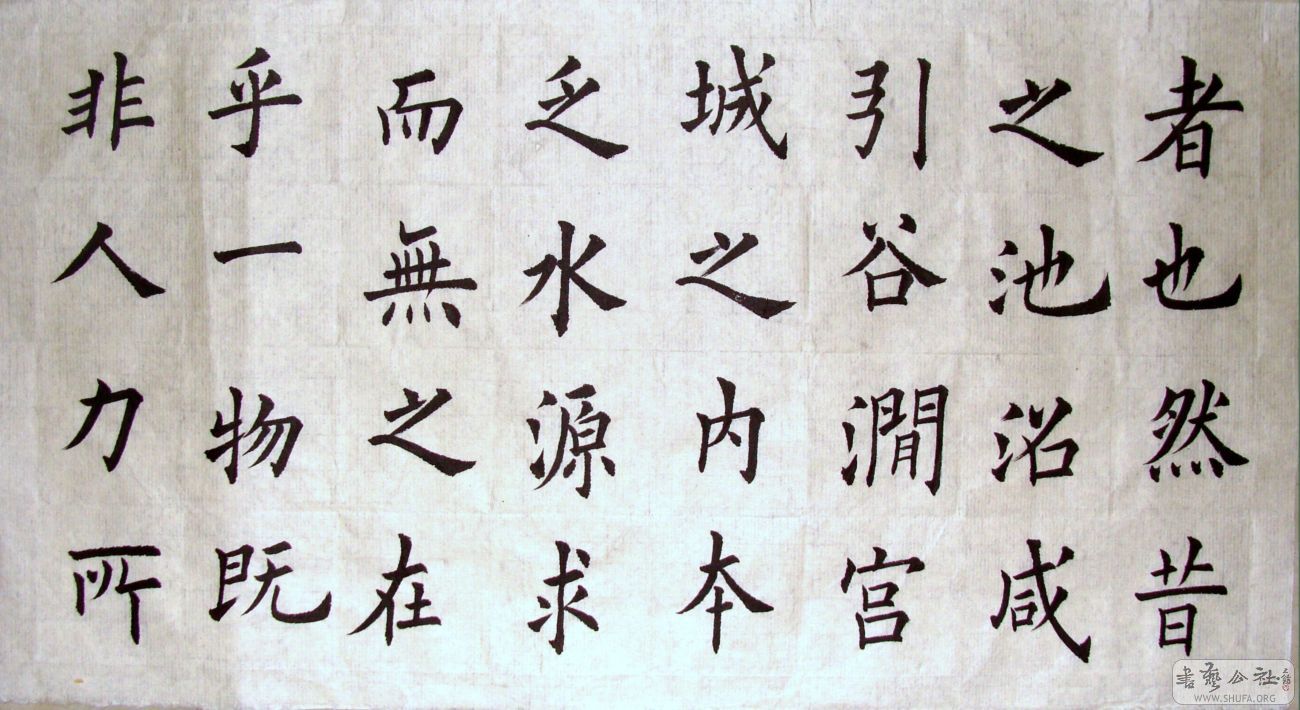 者也然昔
之池沼咸
引谷澗宫
城之内本
乏水源求
而無之在
乎一物既
非人力所
書藝公社
WWW.SHUFA.ORG